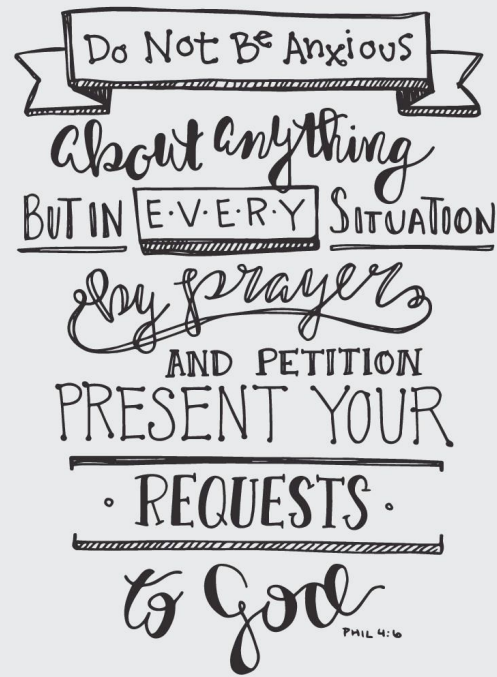 Do Not Be Anxious
about anything
BUT IN E·V·E·R·Y SITUATION
by prayer
AND PETITION
PRESENT YOUR
· REQUESTS ·
to God
PHIL 4:6